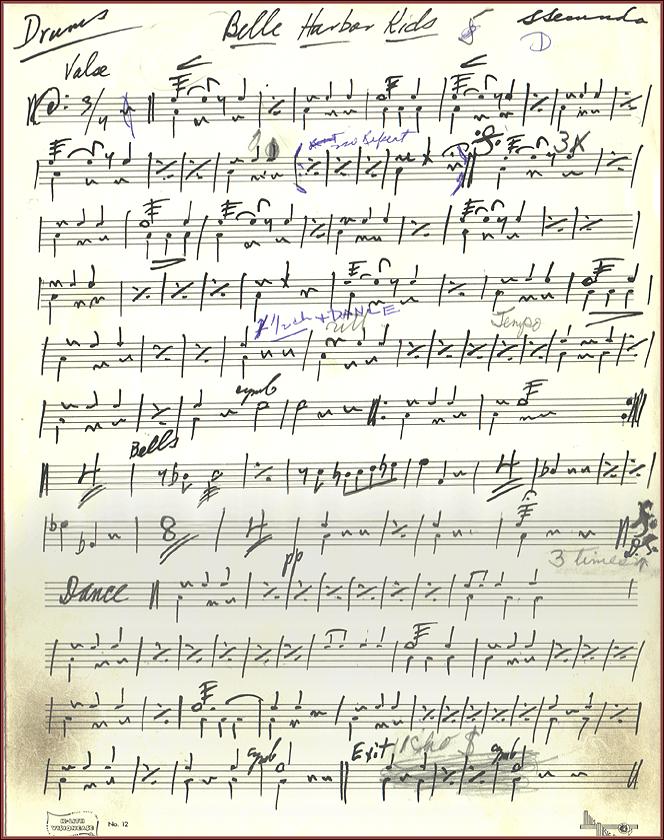 Drums Belle Harbor Kids 5 ssecundo
D
Valse
3/4
no Repeat
3X
1/2 ch + DANCE
Tempo
cymb
Bells
4 4
8 4
pp
D.S.
3 times
Dance
cymb Exit cymb
No. 12